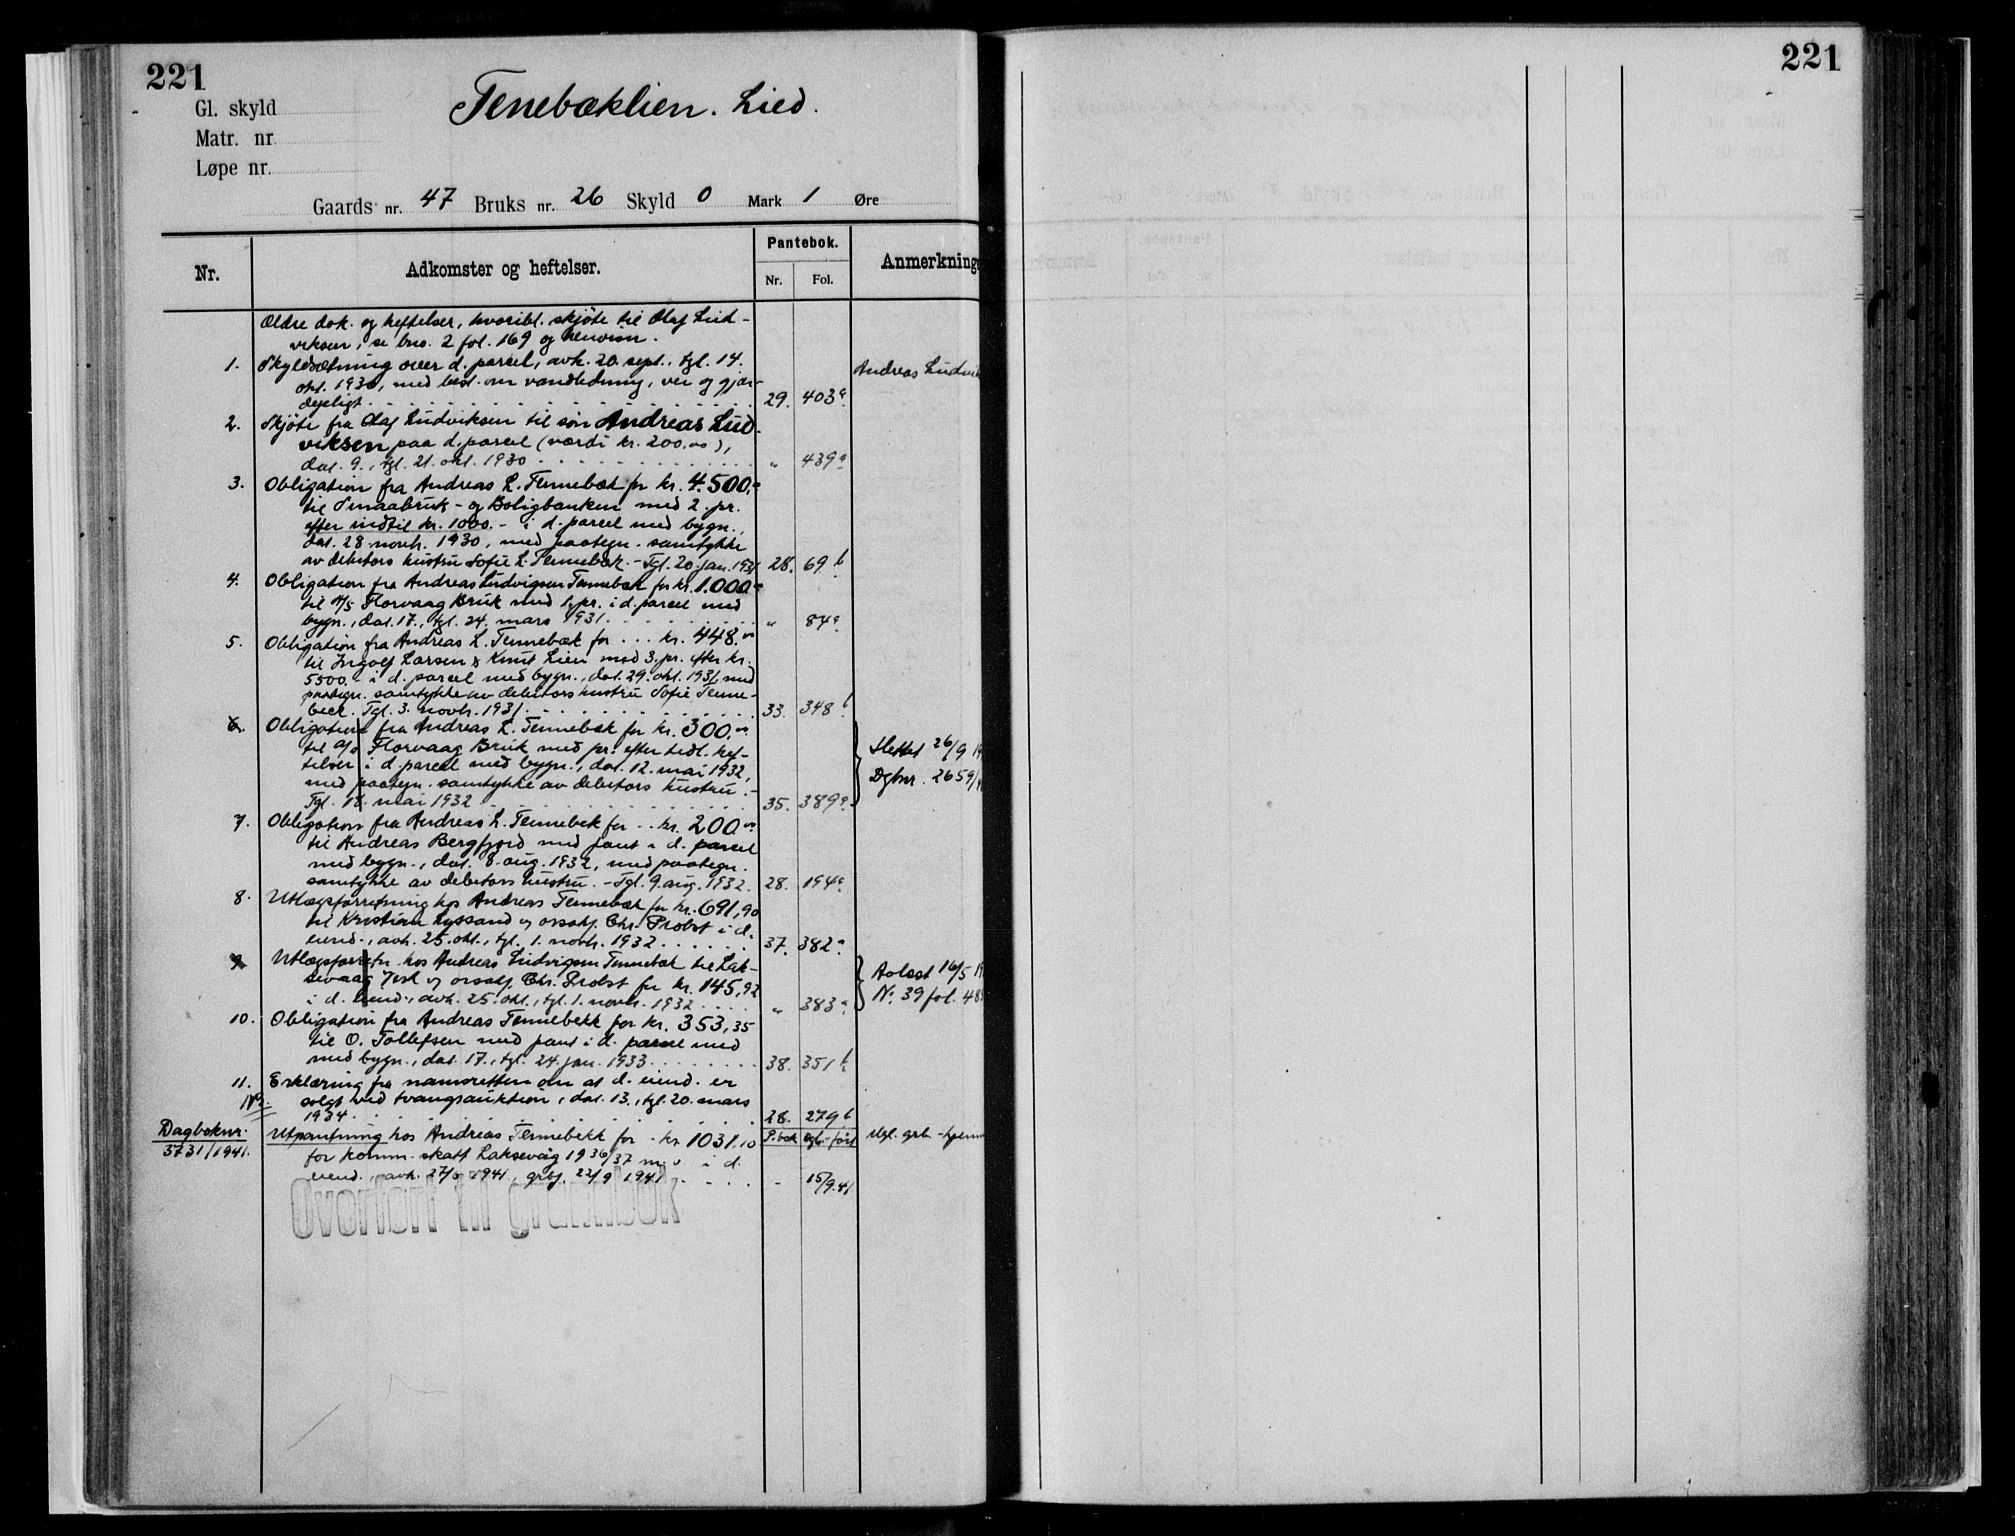 221
221
Gl. skyld
Tenebæklien. Lied.
Matr. nr.
Løpe nr.
Gaards nr. 47 Bruks nr. 26 Skyld 0 Mark 1 Øre
Nr. Adkomster og heftelser. Pantebok. Anmerkninge
Nr. Fol.
Ældre dok. og heftelser, hvoribl. skjöte til Olaf Lud-
viksen, se bno. 2 fol. 169 og henvisn.
1. Skyldsætning over d. parcel, avh. 20. sept., tgl. 14.
okt. 1930, med best. om vandledning, vei og gjær-
depligt 29. 403a
Andreas Ludvik
2. Skjöte fra Olaf Ludviksen til sön Andreas Lud-
viksen paa d. parcel (værdi kr. 200.00),
dat. 9., tgl. 21. okt. 1930 " 439a
3. Obligation fra Andreas L. Tennebæk for kr. 4.500.-
til Smaabruk- og Boligbanken med 2. pr.
efter indtil kr. 1000.- i d. parcel med bygn.,
dat. 28. novh. 1930, med paategn. samtykke
av debitors hustru Sofie L. Tennebæk. - Tgl. 20. jan. 1931 28. 69b
4. Obligation fra Andreas Ludvigsen Tennebæk for kr. 1.000.-
til A/S Florvaag Bruk med 1. pr. i d. parcel med
bygn., dat. 17., tgl. 24. mars 1931 " 84a
5. Obligation fra Andreas L. Tennebæk for ... kr. 448.00
til Ingolf Larsen & Knut Lien med 3. pr. efter kr.
5500.- i d. parcel med bygn., dat. 29. okt. 1931, med
paategn. samtykke av debitors hustru Sofie Tenne-
bæk. Tgl. 3. novh. 1931 33. 348b
6. Obligation fra Andreas L. Tennebæk for kr. 300.00
til A/S Florvaag Bruk med pr. efter tidl. hef-
telser i d. parcel med bygn., dat. 12. mai 1932,
med paategn. samtykke av debitors hustru. -
Tgl. 18. mai 1932 35. 389a
Slettet 26/9 19
Dgbnr. 2659/
7. Obligation fra Andreas L. Tennebæk for .. kr. 200.00
til Andreas Bergfjord med pant i d. parcel
med bygn., dat. 8. aug. 1932, med paategn.
samtykke av debitors hustru. - Tgl. 9. aug. 1932. 28. 194a
8. Utlægsforretning hos Andreas Tennebæk for kr. 691,90
til Kristian Lyssand v/ orsakf. Chr. Probst i d.
eiend., avh. 25. okt., tgl. 1. novh. 1932 37. 382a
9. Utlægsforretn. hos Andreas Ludvigsen Tennebæk til Lak-
sevaag v/ orsakf. Chr. Probst for kr. 145,92
i d. eiend., avh. 25. okt., tgl. 1. novh. 1932 " 383a
Avlæst 16/5 19
No. 39 fol. 48
10. Obligation fra Andreas Tennebekk for kr. 353,35
til O. Tollefsen med pant i d. parcel med
med bygn., dat. 17., tgl. 24. jan. 1933 38. 351b
11. Erklæring fra namsretten om at d. eiend. er
NB. solgt ved tvangsauktion, dat. 13., tgl. 20. mars
1934 28. 279b
Dagboknr. 3731/1941. Utpantning hos Andreas Tennebekk for kr. 1031.10 P.bok dgb.-ført
for komm. skatt Laksevåg 1936/37 m.v. i d.
eiend., avh. 1941, grbf. 22/9 1941 - 15/9.41
Overført til grunnbok